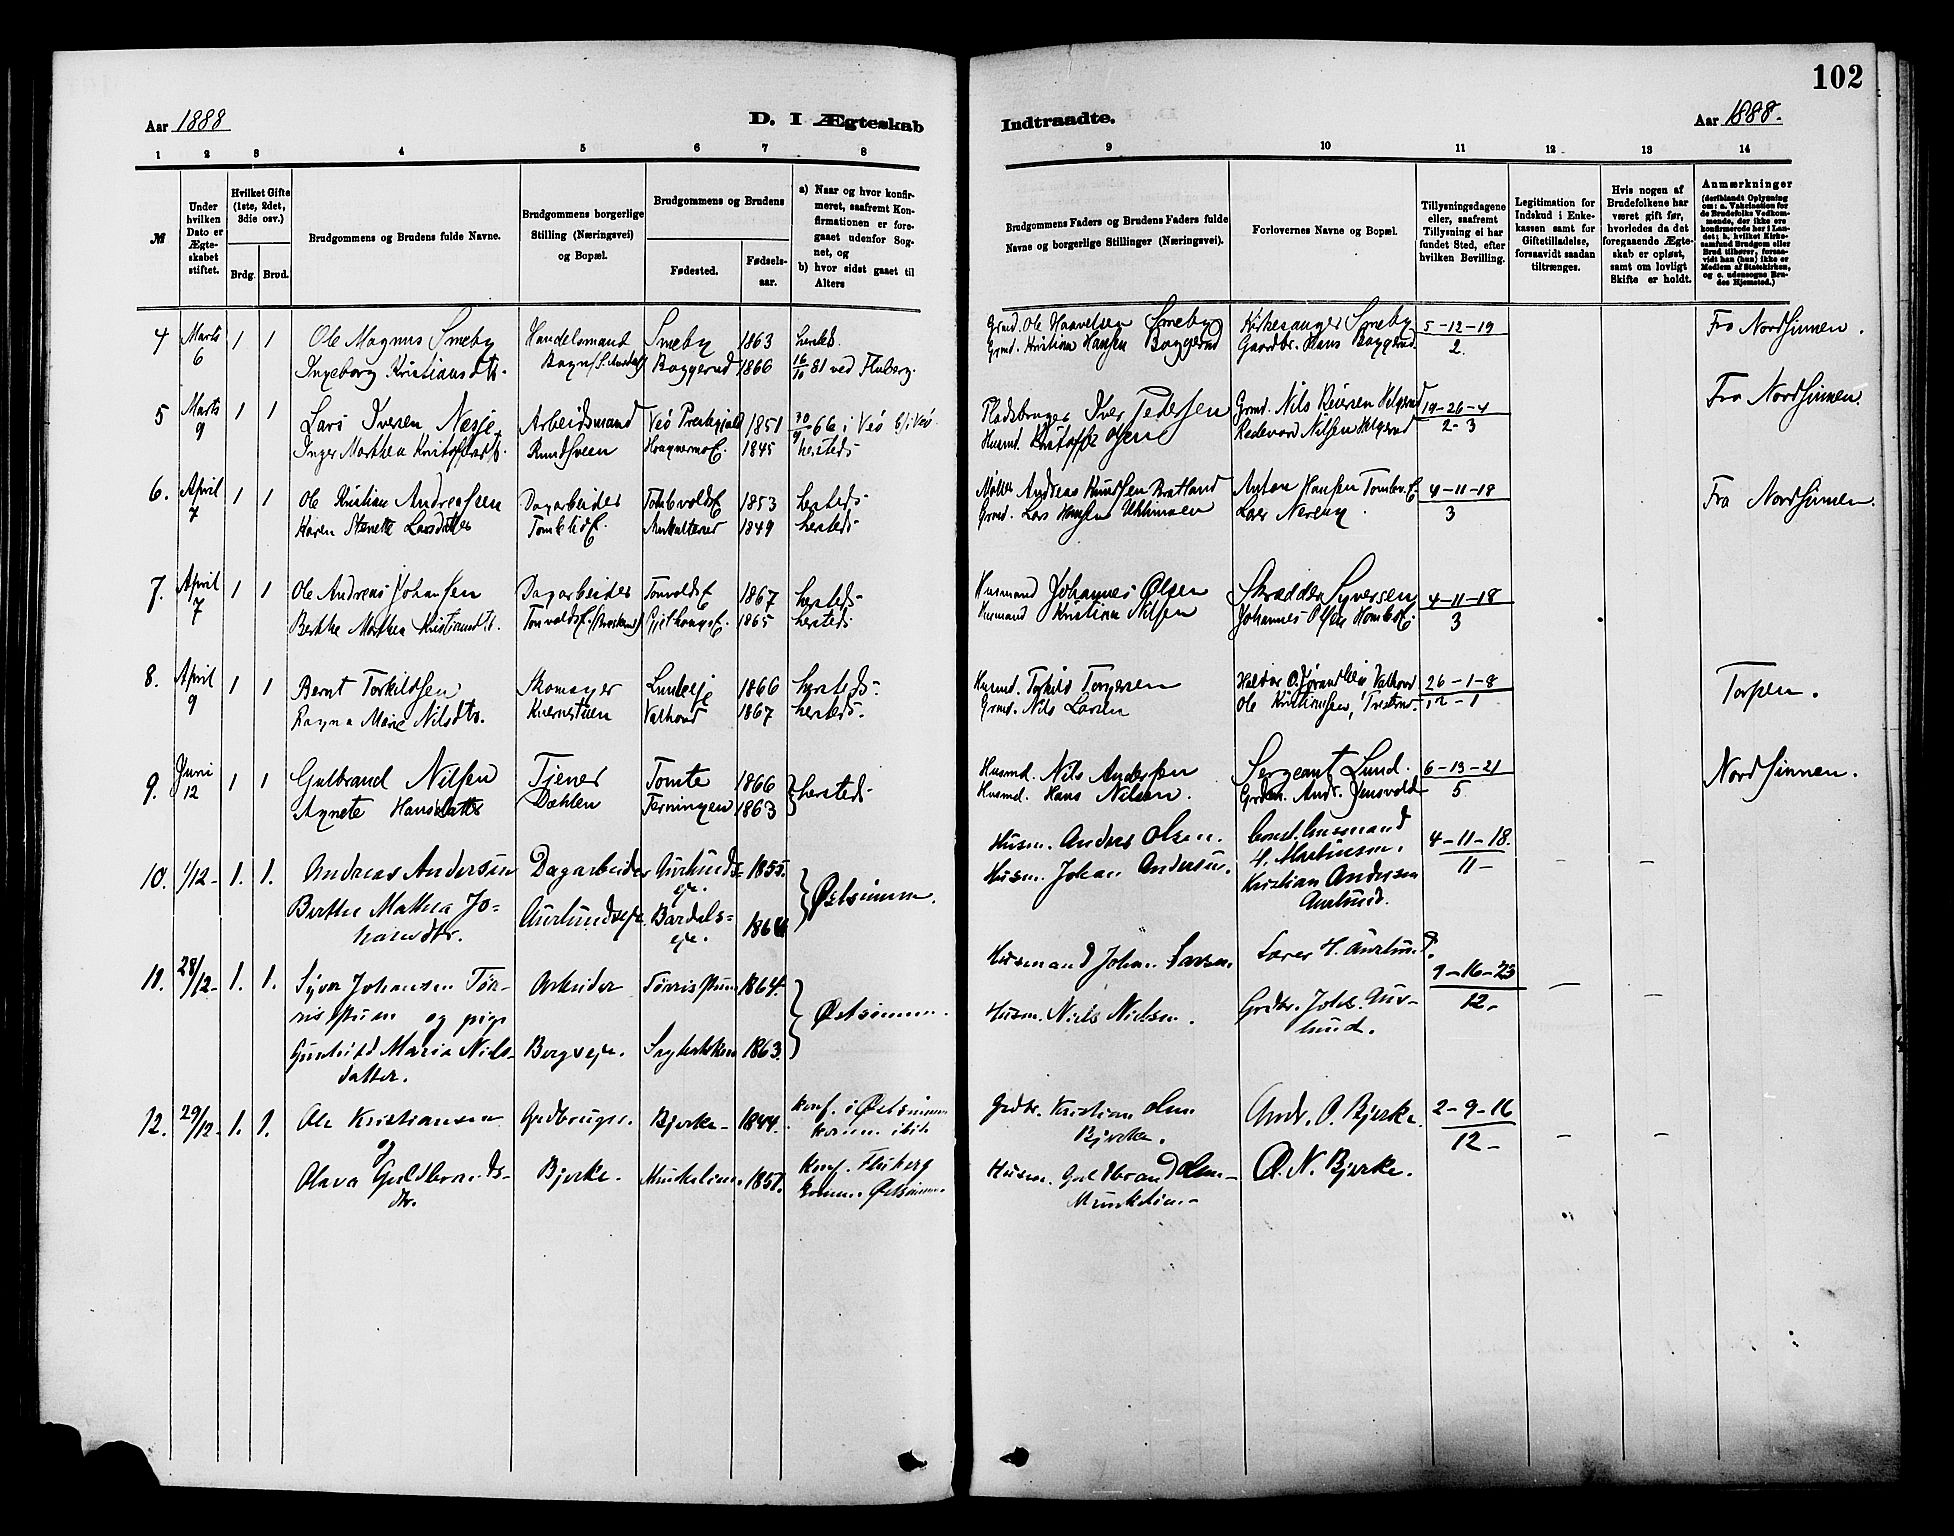 102
Aar 1888
D. I Ægteskab
Indtraadte.
Aar 1888.
1 2 3 4 5 6 7 8
9 10 11 12 13 14
№
Under hvilken Dato er Ægteskabet stiftet.
Hvilket Gifte (1ste, 2det, 3die osv.)
Brdg. Brud.
Brudgommens og Brudens fulde Navne.
Brudgommens borgerlige Stilling (Næringsvei) og Bopæl.
Brudgommens og Brudens
Fødested. Fødselsaar.
a) Naar og hvor konfirmeret, saafremt Konfirmationen er foregaaet udenfor Sognet, og
b) hvor sidst gaaet til Alters
Brudgommens Faders og Brudens Faders fulde Navne og borgerlige Stillinger (Næringsvei).
Forlovernes Navne og Bopæl.
Tillysningsdagene eller, saafremt Tillysning ei har fundet Sted, efter hvilken Bevilling.
Legitimation for Indskud i Enkekassen samt for Giftetilladelse, forsaavidt saadan tiltrænges.
Hvis nogen af Brudefolkene har været gift før, hvorledes da det foregaaende Ægteskab er opløst, samt om lovligt Skifte er holdt.
Anmærkninger (deriblandt Oplysning om: a. Vakcination for de Brudefolks Vedkommende, der ikke ere konfirmerede her i Landet; b. hvilket Kirkesamfund Brudgom eller Brud tilhører, forsaavidt han (hun) ikke er Medlem af Statskirken, og c. udensogns Brudes Hjemsted.)
4 Marts 6 1 1 Ole Magnus Smeby Handelsmand Smeby 1863 hersteds. Grmd. Ole Haavelsen Smeby Kirkesanger Smeby 5-12-19 Fra Nordsinnen.
Ingeborg Kristiansdtr. Bagn Baggerud 1866 16/10 81 ved Fluberg. Grmd. Kristian Hansen Baggerud Gaardbr. Hans Baggerud 2.
5 Marts 9 1 1 Lars Iversen Nesje Arbeidsmand Veö Prestegjeld 1851 30/9 66 i Veö Pladsbruger Iver Pedersen Grmd. Nils Helgerud 19-26-4 Fra Nordsinnen.
Inger Marthea Kristoffersdtr. Rundsveen 1845 hersteds. Husmd. Kristoffer Olsen Redevord Nilsen Helgerud 2-3
6. April 7 1 1 Ole Kristian Andreassen Dagarbeider TomlevoldsE. 1853 hersteds. Møller Andreas Knudsen Bratland Anton Hansen 4-11-18 Fra Nordsinnen.
Karen Larsdatter 1849 hersteds. Grmd. Lars Hansen Lars Nereng. 3
7. April 7 1 1 Ole Andreas Johansen Dagarbeider TonvoldsE 1867 hersteds. Husmand Johannes Olsen Skrædder Syversen 4-11-18
Berthe Marthea Kristiansdtr. TonvoldsE. 1865 hersteds. Husmand Kristian Nilsen Johannes Olsen 3
8. April 9 1 1 Bernt Torkildsen Skomager Lundeje 1866 hersteds. Husmd. Torkild Torgersen 26-1-8 Torpen.
Ragna Marie Nilsdtr. Kvernstuen Valhovd 1867 hersteds. Grmd. Nils Larsen Ole Kristiansen, 12-1
9. Juni 12 1 1 Gulbrand Nilsen Tjener Tomte 1866 hersteds. Husmd. Nils Andersen Sergeant Lund. 6-13-21 Nordsinnen.
Agnete Hansdatter Dæhlen Terningen 1863 Husmd. Hans Nilsen. Andr. Jensvold 5
10. 1/12- 1. 1. Andreas Andersen Dagarbeider Aurlundseje. 1855. Østsinnen. Husm. Anders Olsen. husmand H. Martinsen. 4-11-18.
Berthe Mathea Johansdtr. Aurlundseje Bardalseje. Husm. Johan Andersen. Kristian Andersen Aurlund. 11-
11. 28/12- 1. 1. Syver Johansen Tørrisstuen og pige Arbeider Tørrisstuen 1864. Østsinnen. Husmand Johan Larsen Lærer H. Aurlund. 9-16-23
Gunhild Maria Nilsdatter. Bergseje. 1863. Husm. Niels Nielsen. Grdbr. Johs. Aurlund. 12.
12. 29/12- 1. 1. Ole Kristiansen og Grdbruger. Bjerke- 1844. Konf. i Østsinnen Grdbr. Kristian Olsen Bjerke. Andr. O. Bjerke. 2-9-16
Olava Guldbrandsdtr. Bjerke. Munkelien. 1851. Konf. Fluberg komm. Østsinnen. Husm. Guldbrand Olsen Munkelien- O. N. Bjerke. 12-